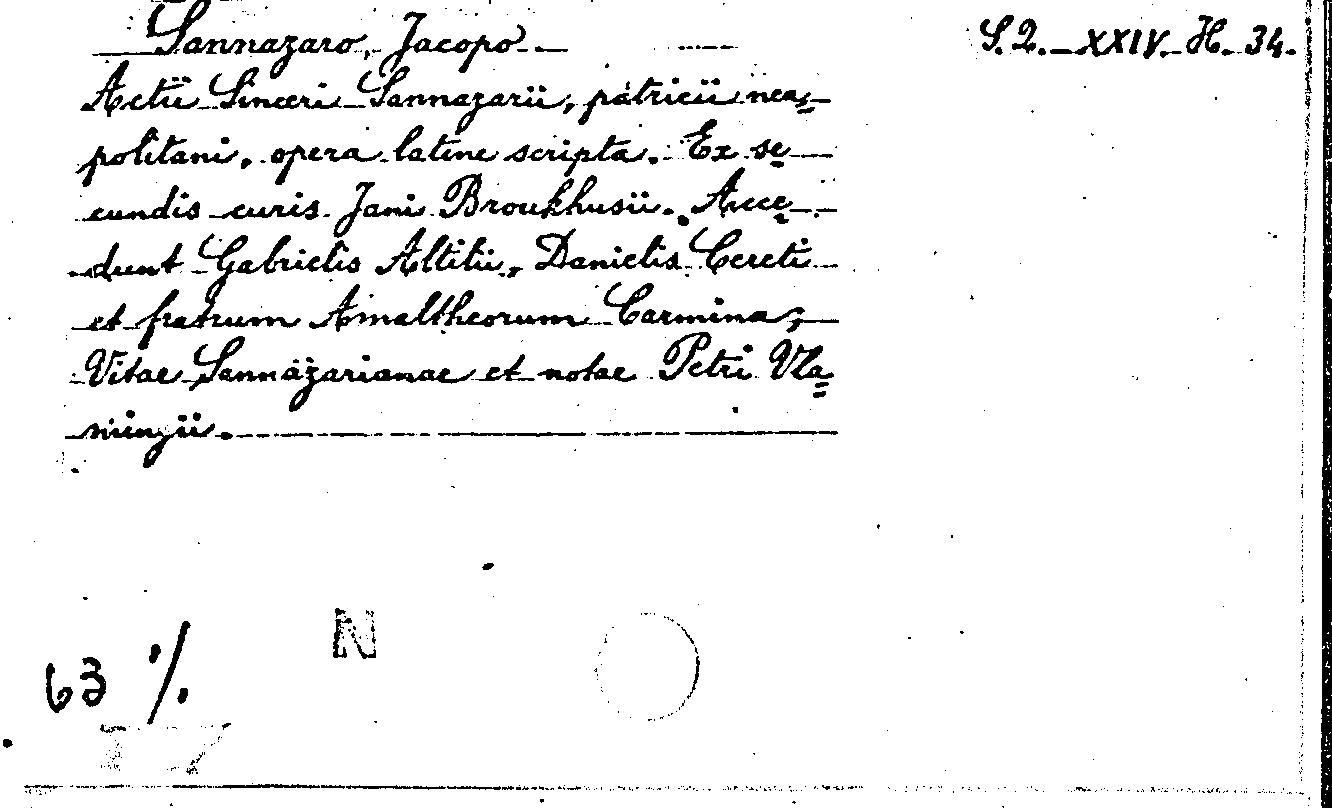 Sannazaro, Jacopo. S.Q. XXIV. H. 34.
Actii Sinceri Sannazarii, patricii nea=
politani, opera latine scripta. Ex se
cundis curis Jani Broukhusii. Acce
dunt Gabrielis Altilii, Danielis Cereti
et fratrum Amaltheorum Carmina;
Vitae Sannazarianae et notae Petri Vla=
mingii.
63 ·/.
N